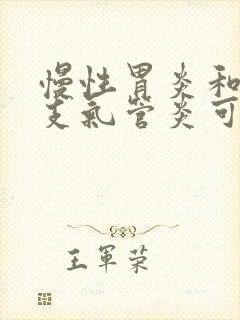 慢性胃炎和
支氣管炎可
王軍榮